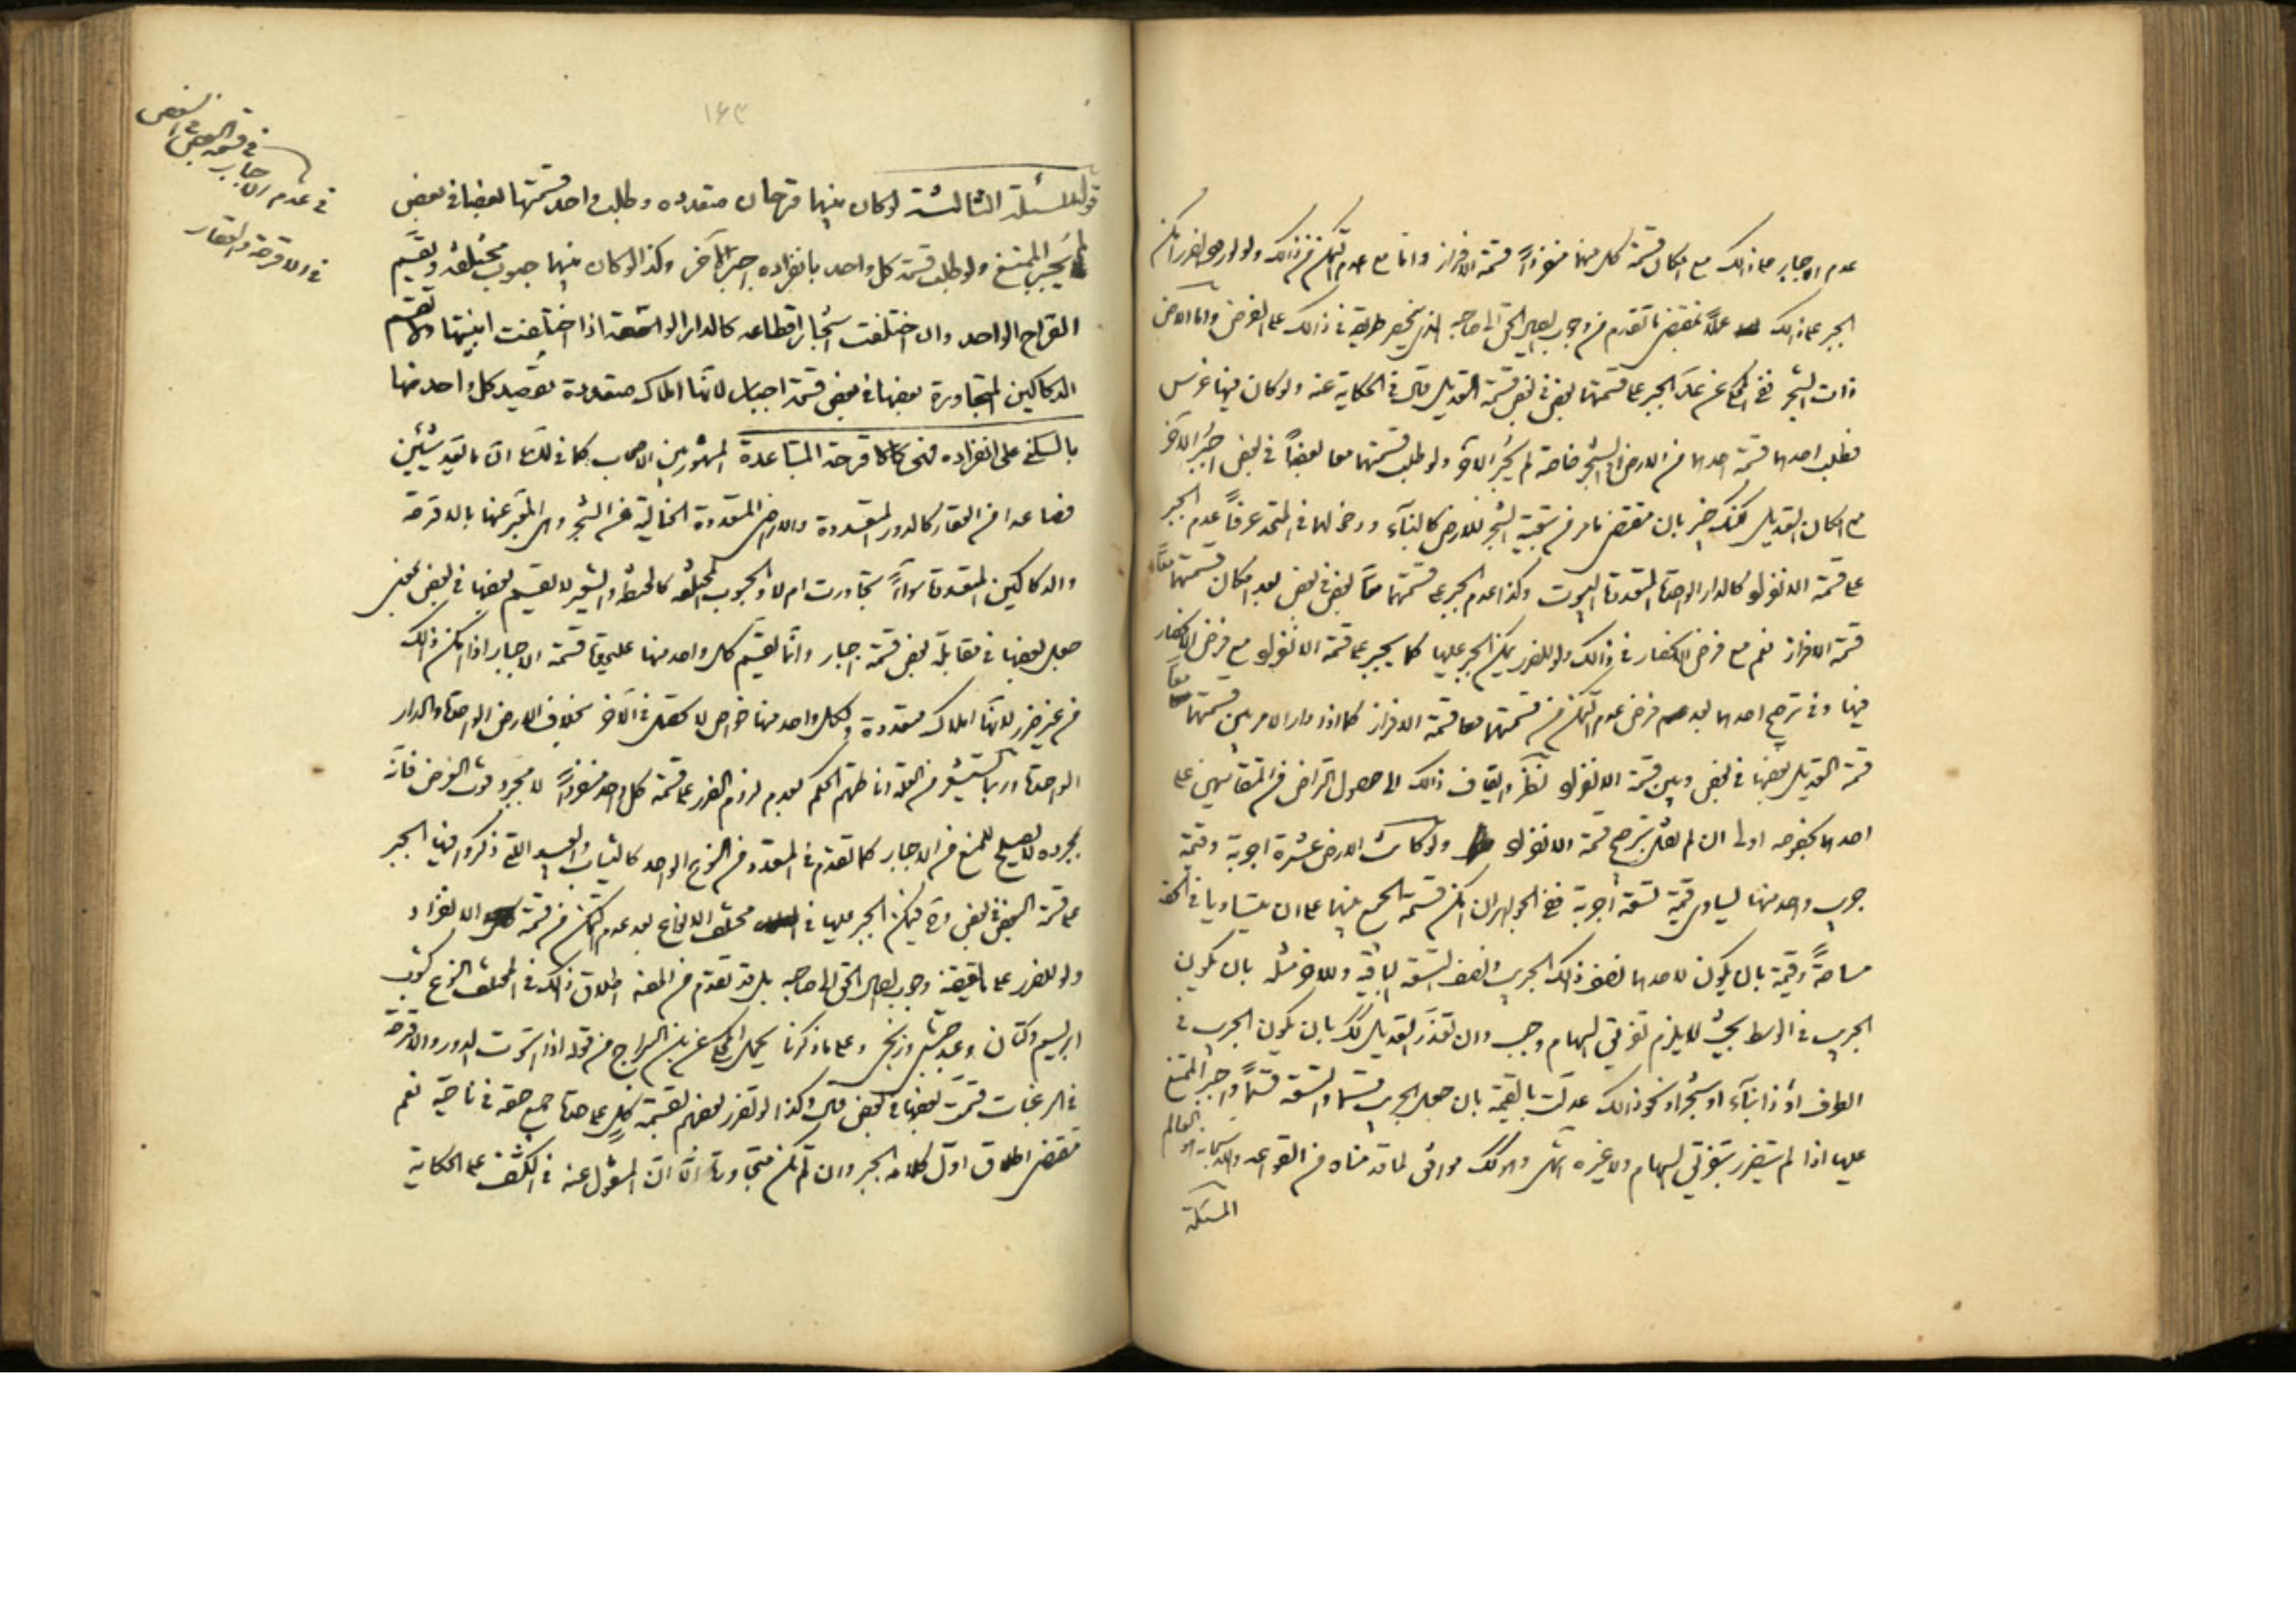 عدم الاجبار على ذلك مع امكان قسمة كل منهما منفرداً قسمة الافراز واما مع عدم التمكن من ذلك ولو للضرر امكن
الجبر على ذلك عملاً بمقتضى ما تقدم من وجوب ايصال الحق الى صاحبه الذي ينحصر طريقه في ذلك على الفرض واما الارض
ذات الشجر ففي المحكي عن عد الجبر على قسمتهما بعض في بعض قسمة التعديل قال في الحكاية عنه ولو كان بينهما غرس
فطلب احدهما قسمة احدهما من الارض او الشجر خاصة لم يجبر الآخر ولو طلب قسمتهما معا بعضاً في بعض اجبر الآخر
مع امكان التعديل لكنك خبير بان مقتضى ما مر من تبعية الشجر للارض كالبناء ودخولهما في المتحد عرفاً عدم الجبر
على قسمة الانفراد كالدار الواحدة المتعددة البيوت وكذا عدم الجبر على قسمتهما معاً بعض في بعض بعد امكان قسمتهما معاً
قسمة الافراز نعم مع فرض الانحصار في ذلك ولو للضرر يمكن الجبر عليها كما يجبر على قسمة الانفراد مع فرض الانحصار
فيها وفي ترجيح احدهما بعد فرض عدم التمكن من قسمتهما معا قسمة الافراز كما اذا دار الامر بين قسمتهما معاً
قسمة التعديل بعضها في بعض وبين قسمة الانفراد نظر وايقاف ذلك الى حصول التراضي من المتقاسمين على
احدهما بخصوصه اولى ان لم نقل بترجيح قسمة الانفراد ولو كانت الارض عشرة اجربة وقيمة
جريب واحد منها يساوي قيمة تسعة اجربة ففي الجواهر ان امكن قسمة الجميع بينهما على ان يتساويا في الحق
مساحةً وقيمة بان يكون لاحدهما نصف ذلك الجريب ونصف التسعة الباقية وللآخر مثله بان يكون
الجريب في الوسط بحيث لا يلزم تفريق السهام وجب وان تعذر التعديل كذلك بان يكون الجريب في
الطرف او ذا بناء او شجر او نحو ذلك عدلت بالقيمة بان جعل الجريب قسما والتسعة قسماً واجبر الممتنع
عليها اذا لم يتضرر بتفريق السهام ولا غيره انتهى وهو كذلك موافق لما قدمناه من القواعد والله سبحانه هو العالم
المسئلة
١٤٣
قوله المسئلة الثالثة لو كان بينهما قرحان متعدده وطلب واحد قسمتها بعضا في بعض
لم يجبر الممتنع ولو طلب قسمة كل واحد بانفراده اجبر الآخر وكذا لو كان بينهما حبوب مختلفه ويقسم
القراح الواحد وان اختلفت اشجار اقطاعه كالدار الواسعة اذا اختلفت ابنيتها ولا تقسم
الدكاكين المتجاورة بعضها في بعض قسمة اجبار لانها املاك متعددة يقصد كل واحد منها
بالسكنى على انفراده فهي كالاقرحة المتباعدة المشهور بين الاصحاب كما في لك ان ما تعدد شيئين
فصاعدا من العقار كالدور المتعددة والارض المتعددة الخالية من الشجر وهي المعبر عنها بالاقرحة
والدكاكين المتعددة سواءً تجاورت ام لا والحبوب المختلفه كالحنطة والشعير لا يقسم بعضها في بعض بمعنى
جعل بعضها في مقابلة بعض قسمة اجبار وانما يقسم كل واحد منها عليحدة قسمة الاجبار اذا امكن ذلك
من غير ضرر لانها املاك متعددة ولكل واحد منها خواص لا تحصل في الآخر بخلاف الارض الواحدة والدار
الواحدة وربما يستشم من العلة اناطتهم الحكم بعدم لزوم الضرر على قسمة كل واحد منفرداً لا مجرد فوت الغرض فانه
بمجرده لا يصلح للمنع من الاجبار كما تقدم في المتعدد من النوع الواحد كالثياب والعبيد التي ذكروا فيها الجبر
على قسمة البعض في بعض وح فيمكن الجبر عليها في مختلف الانواع بعد عدم التمكن من قسمة الانفراد
ولو للضرر على ما يقتضيه وجوب ايصال الحق الى صاحبه بل قد تقدم من الفقه اطلاق ذلك في المختلف النوع كثوب
ابريسم وكتان وعبد حبشي وزنجي وعلى ما ذكرنا يحمل المحكي عن ابن البراج من قوله اذا استوت الدور والاقرحة
في الرغبات قسمت بعضها في بعض قال وكذا لو تضرر بعضهم بقسمة كلٍ على حدة جمع حقه في ناحية نعم
مقتضى اطلاق اول كلامه الجبر وان لم تكن متجاورة الا ان المنقول عنه في الكشف على الحكاية
في عدم الاجبار
في قسمة البعض في البعض
في الاقرحة والعقار